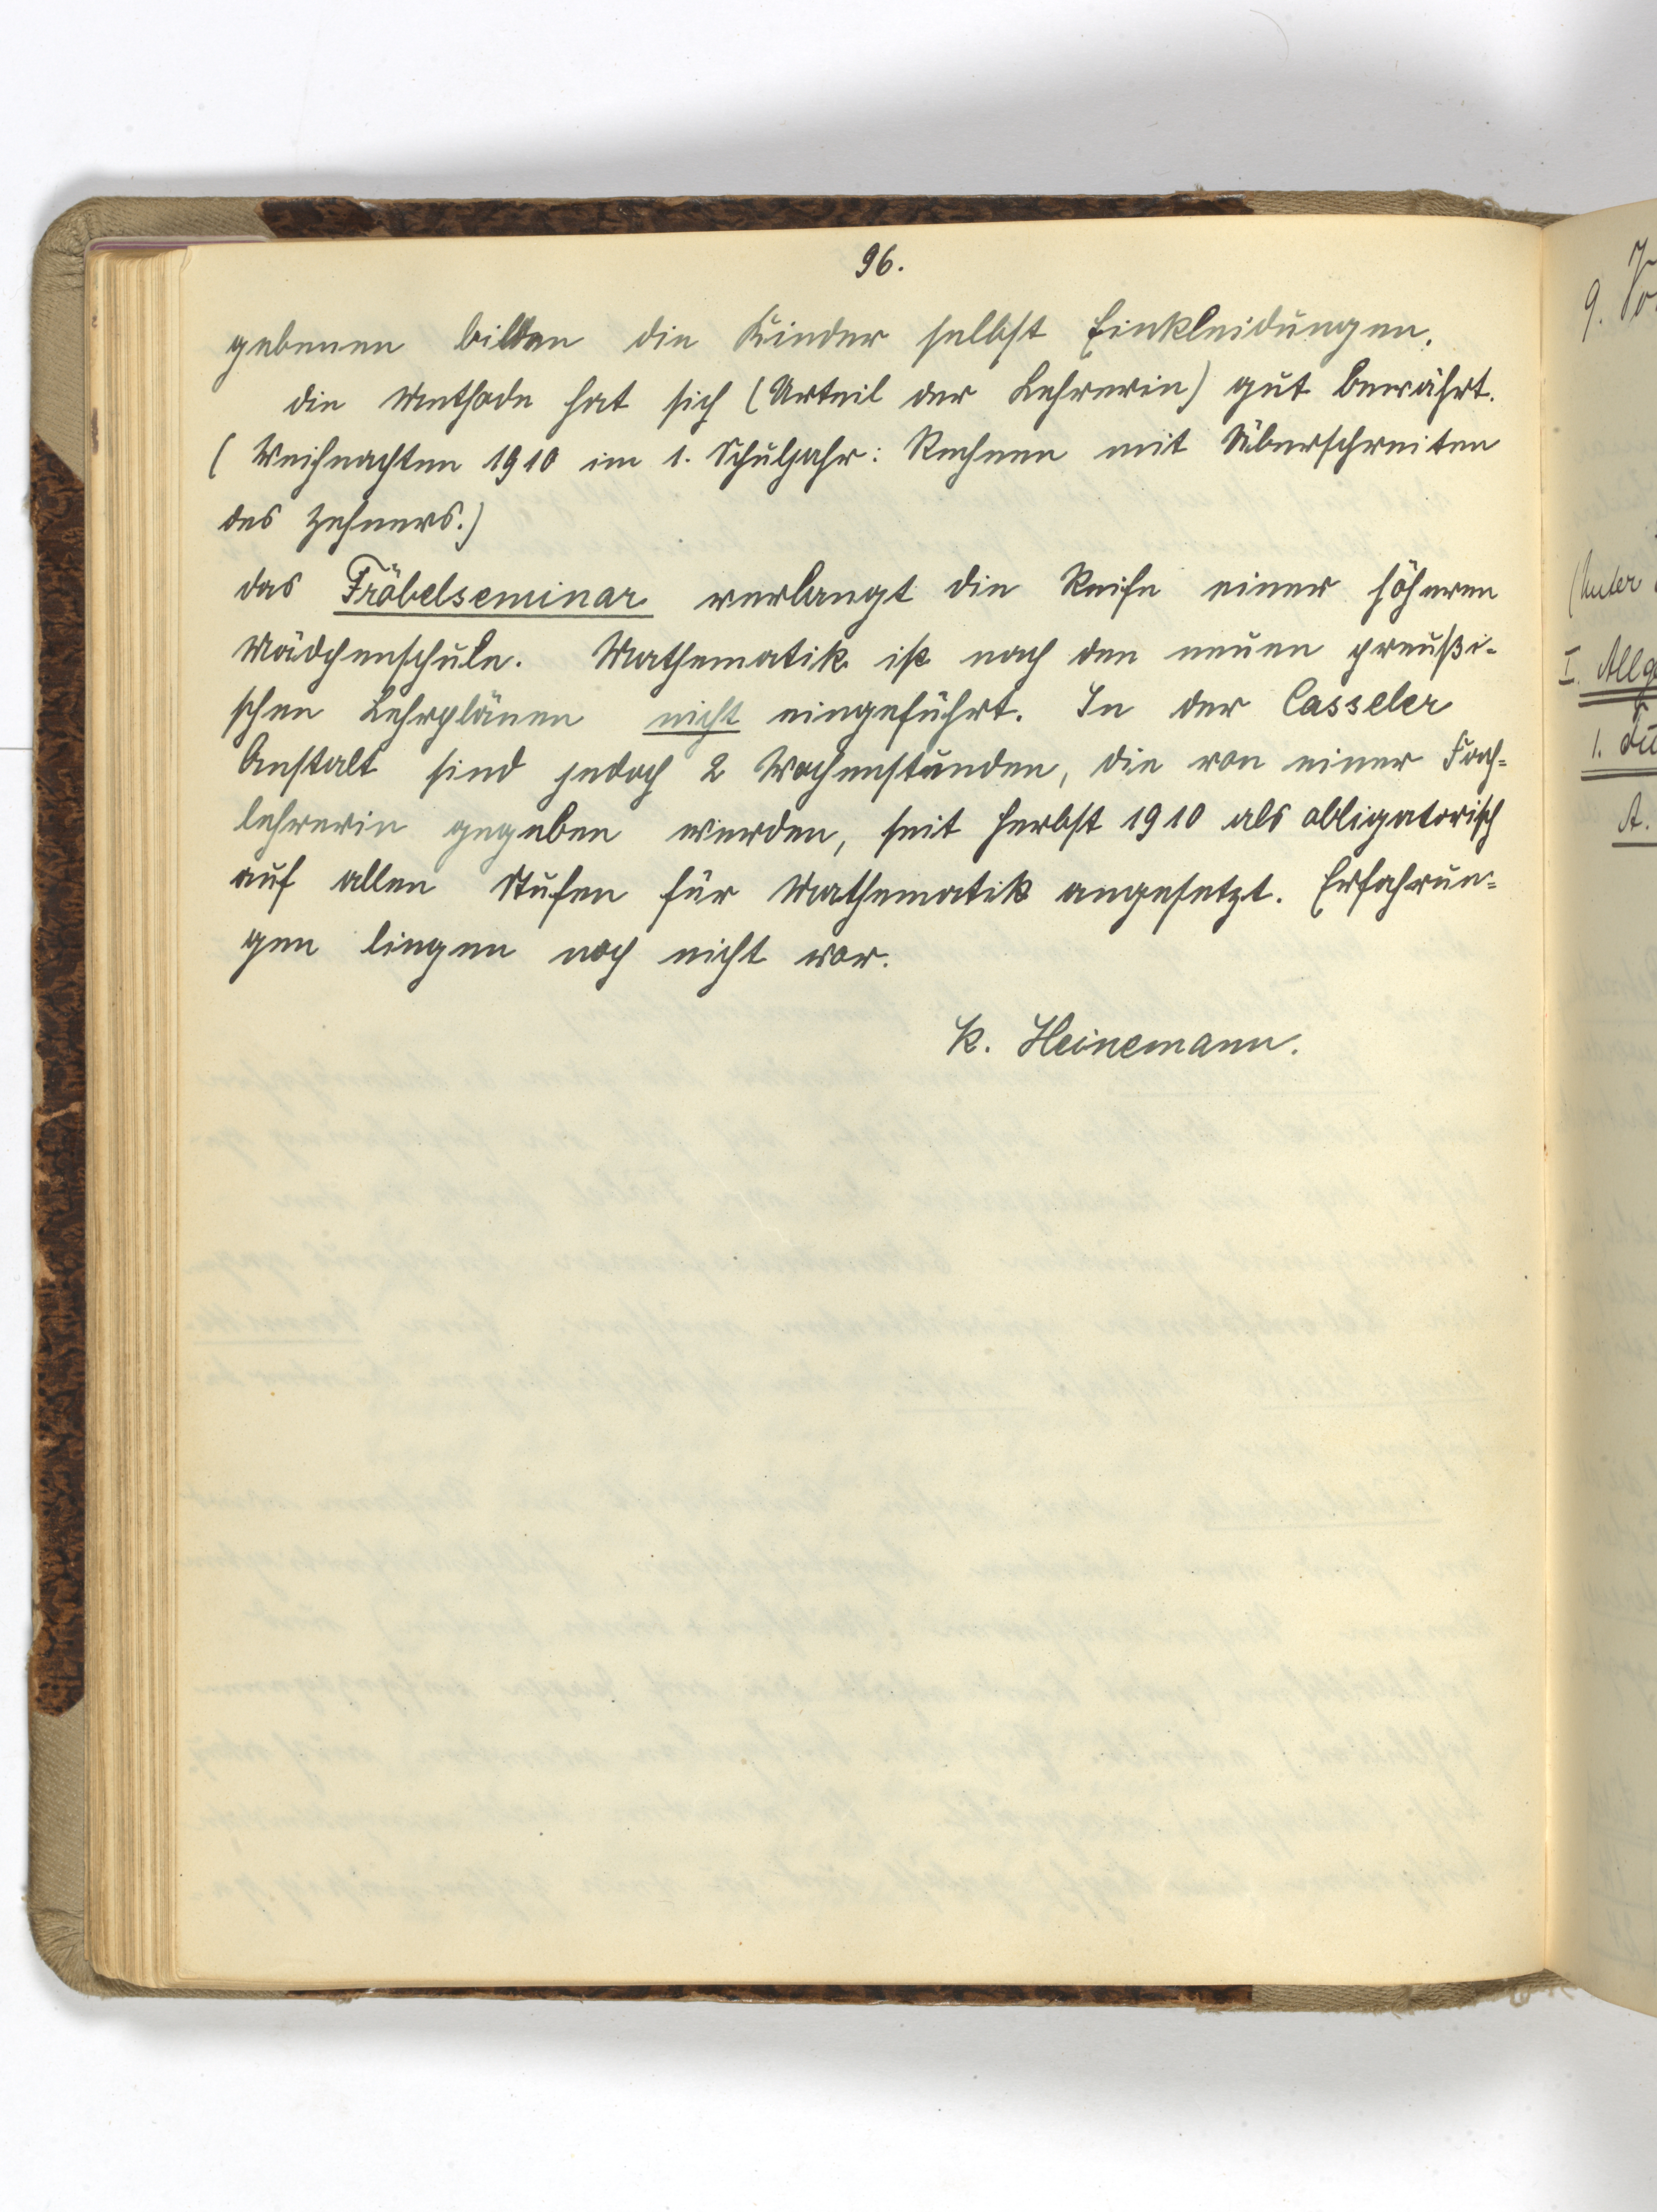 96.
gebenen bilden die Kinder selbst Einkleidungen.
Die Methode hat sich (Urteil der Lehrerin) gut bewährt.
(Weihnachten 1910 im 1. Schuljahr: Rechnen mit Überschreiten
des Zehners.)
Das Fröbelseminar verlangt die Reife einer höheren
Mädchenschule. Mathematik ist nach den neuen preußi-
schen Lehrplänen nicht eingeführt. In der Casseler
Anstalt sind jedoch 2 Wochenstunden, die von einer Fach=
lehrerin gegeben werden, seit Herbst 1910 als obligatorisch
auf allen Stufen für Mathematik angesetzt. Erfahrun=
gen liegen noch nicht vor.
K. Heinemann.
9.
(Unter
I.
1.
A.